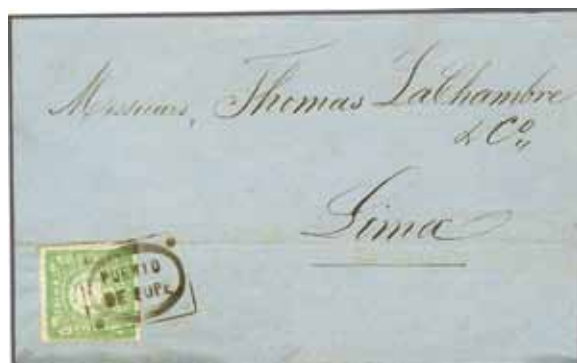 Messieurs, Thomas LaChambre
& Co,,
Lima
PUERTO
DE SUPE